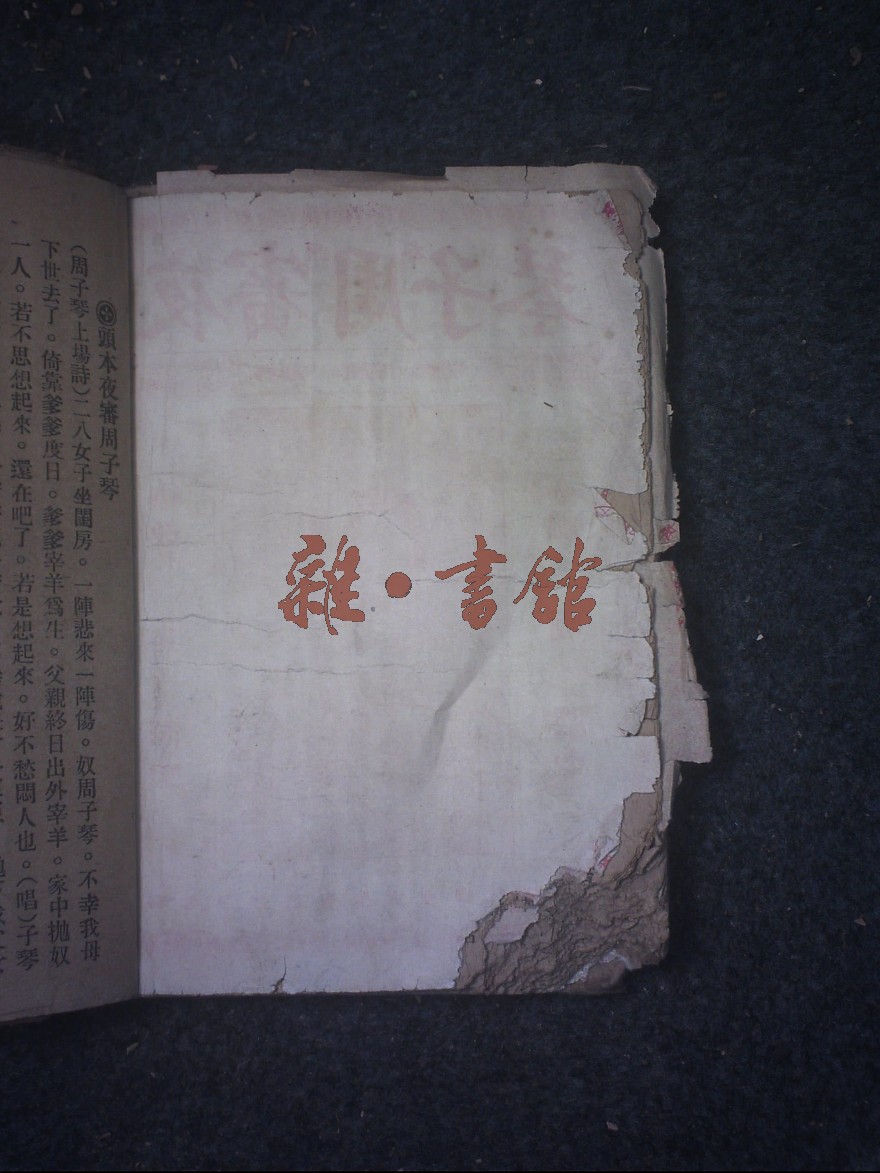 頭本夜審周子琴
(周子琴上場詩)二八女子坐閨房。一陣悲來一陣傷。奴周子琴。不幸我母
下世去了。倚靠爹爹度日。爹爹宰羊爲生。父親終日出外宰羊。家中拋奴
一人。若不思想起來。還在吧了。若是想起來。好不愁悶人也。(唱)子琴
夜審周子琴
雜·書館